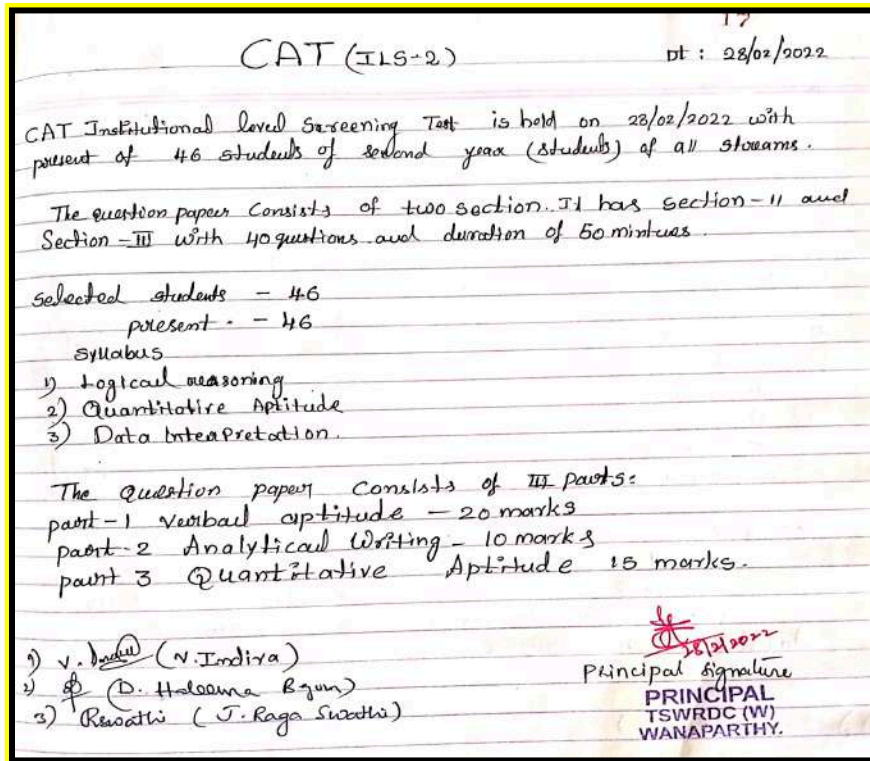 17
CAT (ILS-2)
Dt : 28/02/2022
CAT Institutional level Screening Test is held on 28/02/2022 with
present of 46 students of second year (students) of all streams.
The question paper Consists of two section. It has Section - II and
Section - III with 40 questions and duration of 50 mintues.
Selected students - 46
present. - 46
Syllabus
1) Logical reasoning
2) Quantitative Aptitude
3) Data Interpretation.
The Question paper Consists of III parts:
part-1 Verbal aptitude - 20 marks
part-2 Analytical Writing - 10 marks
part 3 Quantitative Aptitude 15 marks.
1) V. (V. Indira)
2) (D. Haleema Bgum)
3) Rswathi (J. Raga Swathi)
28/2/2022
Principal signature
PRINCIPAL
TSWRDC (W)
WANAPARTHY.